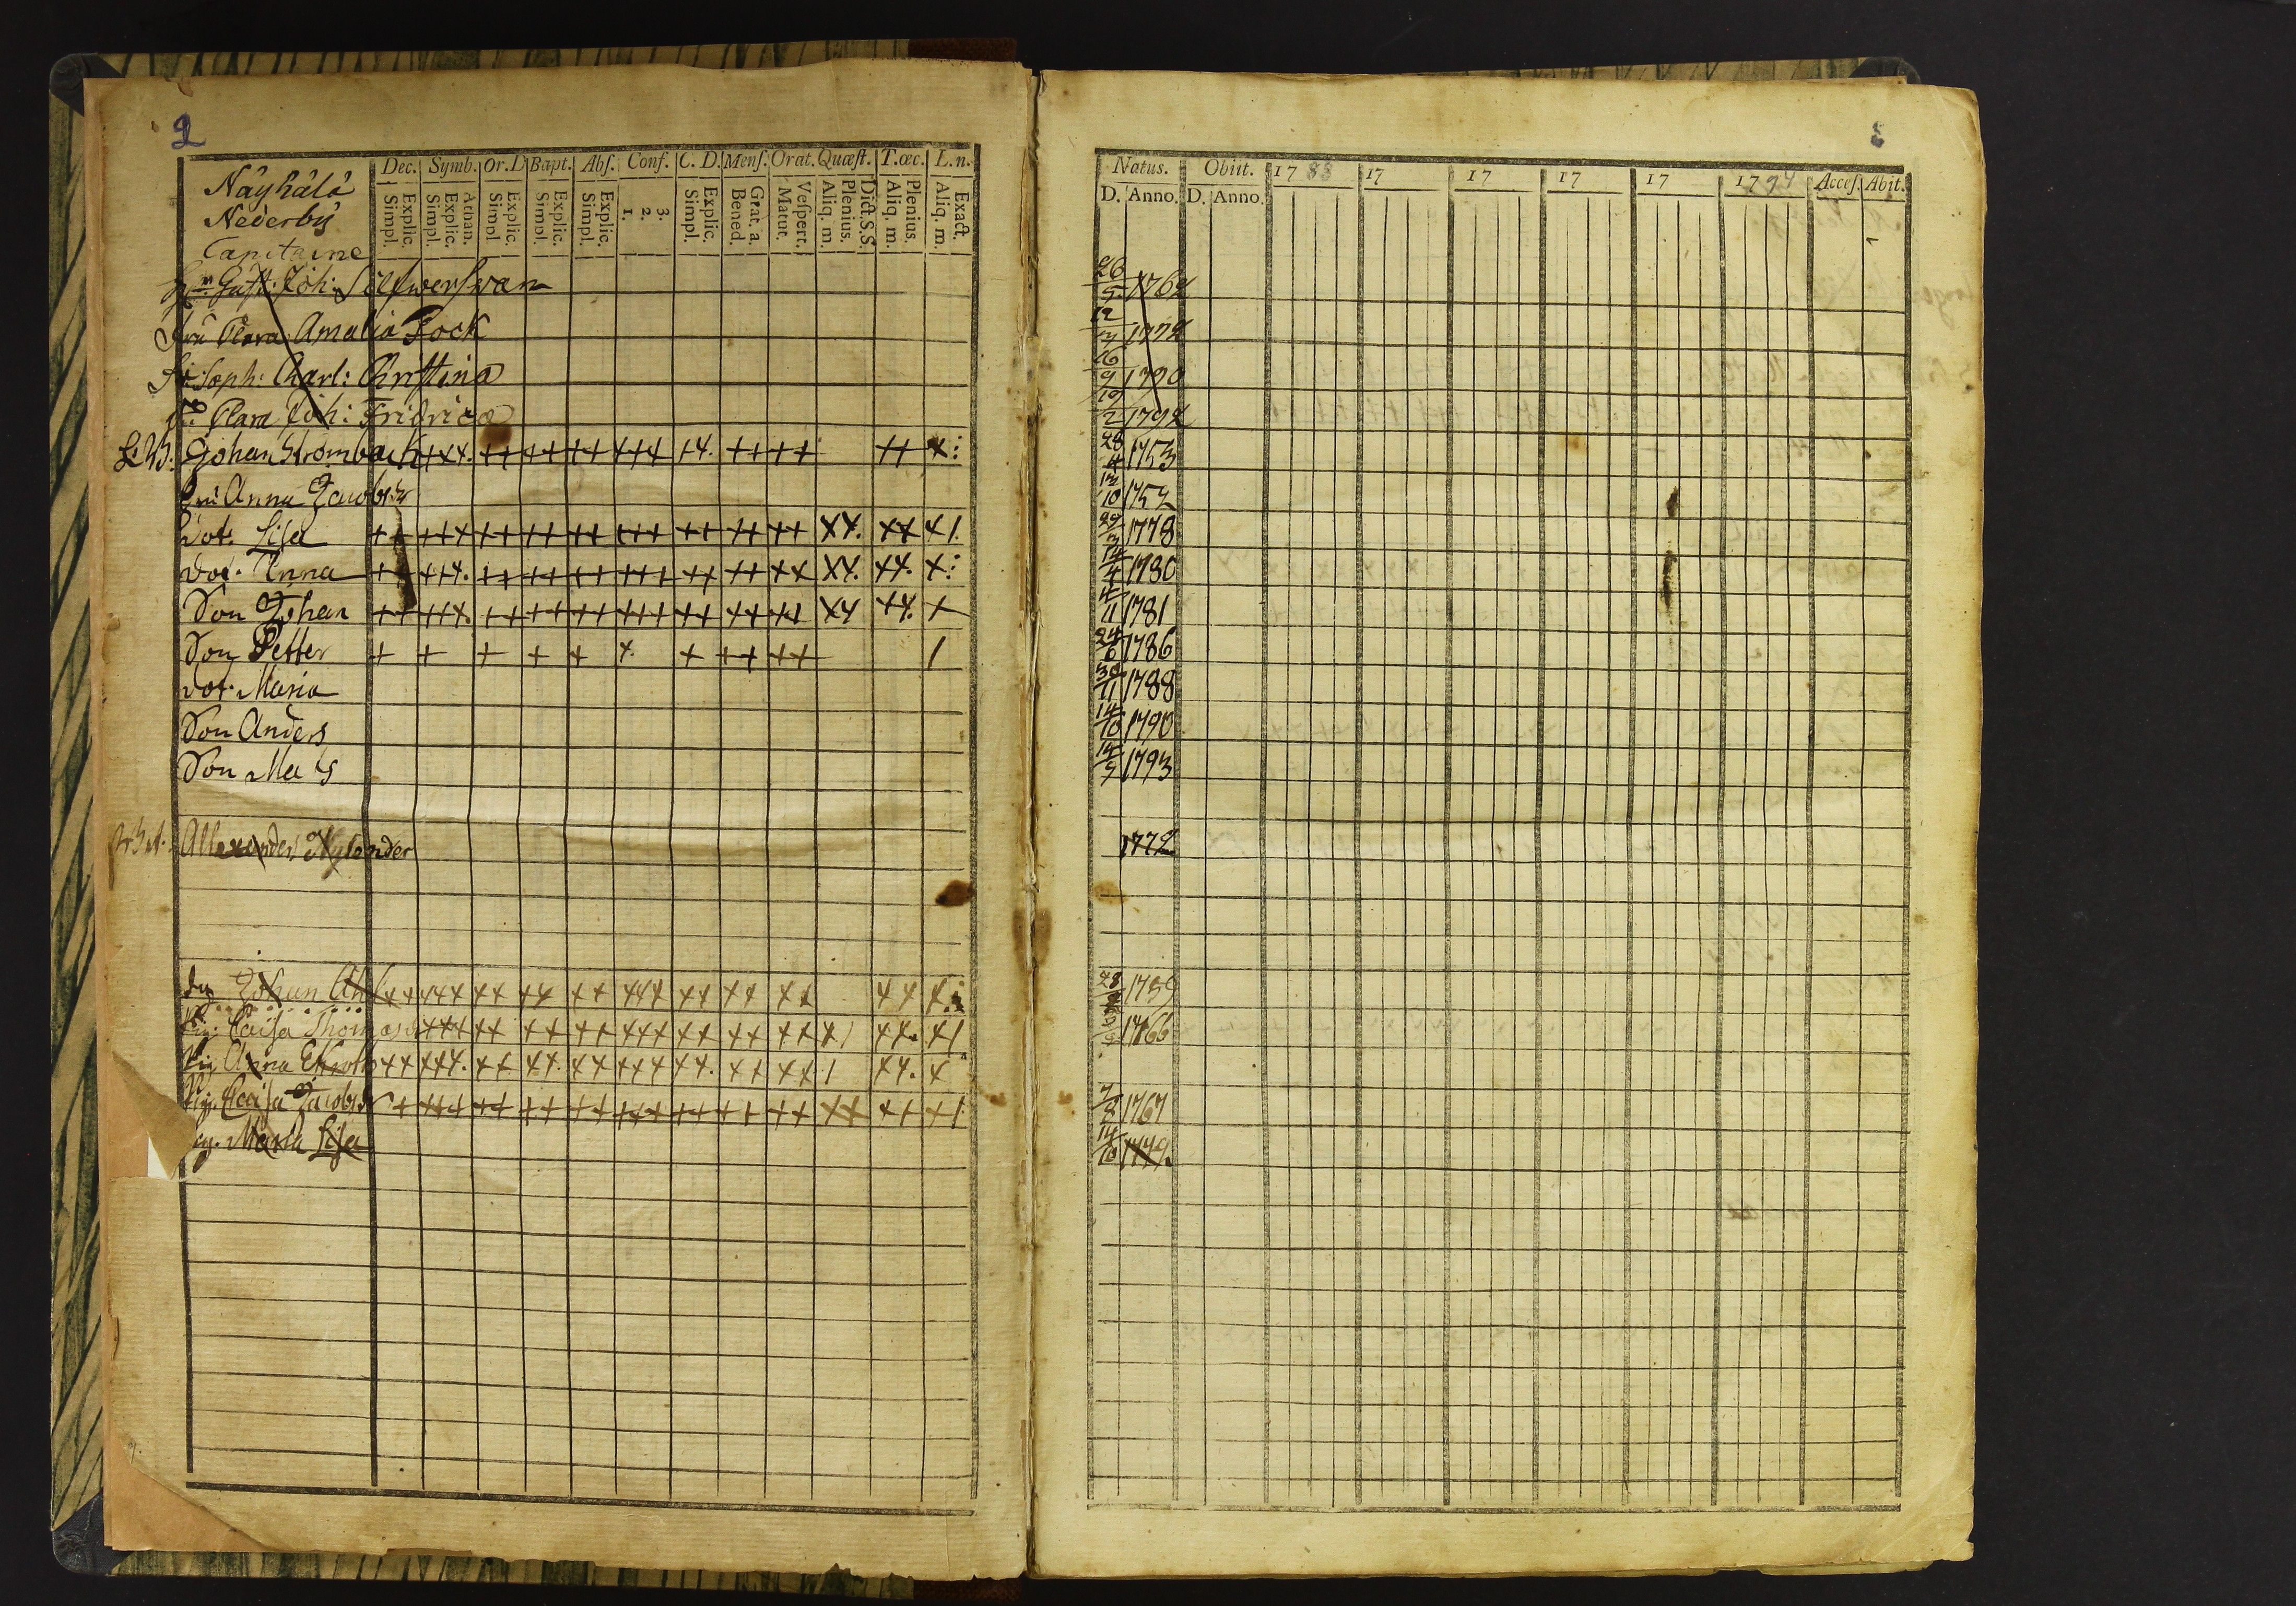 2
Näyhälä
Nederby
Capitaine
Dec. Symb. Or.D Bapt. Abſ. Conf. C. D. Menſ. Orat. Quæſt. T.œc. L.n.
Explic. Simpl. Athan. Explic. Simpl. Explic. Simpl. Explic. Simpl. Explic. Simpl. 3. 2. 1. Explic. Simpl. Grat. a. Bened. Veſpert. Matut. Dict. S.S. Plenius. Aliq. m. Plenius. Aliq. m. Exact. Aliq. m.
Gust: Joh: Silfwersvan
Fru Clara Amalia Fock
Soph: Charl: Christina
Clara Joh: Fridrica
Johan Strömback +++ ++ ++ ++ +++ ++ ++ ++ ++ +
Fru Anna Jacobsdr
Dot. Lisa ++ +++ ++ ++ ++ +++ ++ ++ ++ ++ ++ +1
Dot. Anna ++ +++ ++ ++ ++ +++ ++ ++ ++ ++ ++ +
Son Johan ++ +++ ++ ++ ++ +++ ++ ++ ++ ++ ++ +
Son Petter + + + + + + + ++ ++ /
Dot. Maria
Son Anders
Son Mats
Allexander Nylander
Johan ++ +++ ++ ++ ++ +++ ++ ++ ++ ++ +
Pig. Caisa Thomasdr +++ ++ ++ ++ +++ ++ ++ ++ +1 ++ +1
Pig. Anna ++ +++ ++ ++ ++ +++ ++ ++ ++ 1 ++ +
Pig. Caisa Jacobsdr + +++ ++ ++ ++ +++ ++ ++ ++ ++ ++ +1
Maria Lisa
Natus. Obiit. 17 88 17 17 17 17 1794 Acceſ. Abit.
D. Anno. D. Anno.
26/9 1762
12/7 1772
16/9 1790
19/2 1792
28/4 1753
13/10 1752
29/3 1778
14/4 1780
4/11 1781
24/6 1786
30/11 1788
14/10 1790
14/9 1793
1772
28/2 1759
1766
7/8 1767
14/10 1749